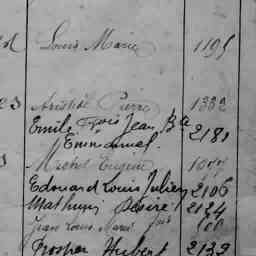 Louis Marie 1195
es Aristide Pierre 1332
Emile Fois Jean Bte
Emmanuel. 2180
Michel Eugène
Edouard Louis Julien 2106
Mathurin Désiré 2134
Jean Louis Marie
Prosper Hubert 2139